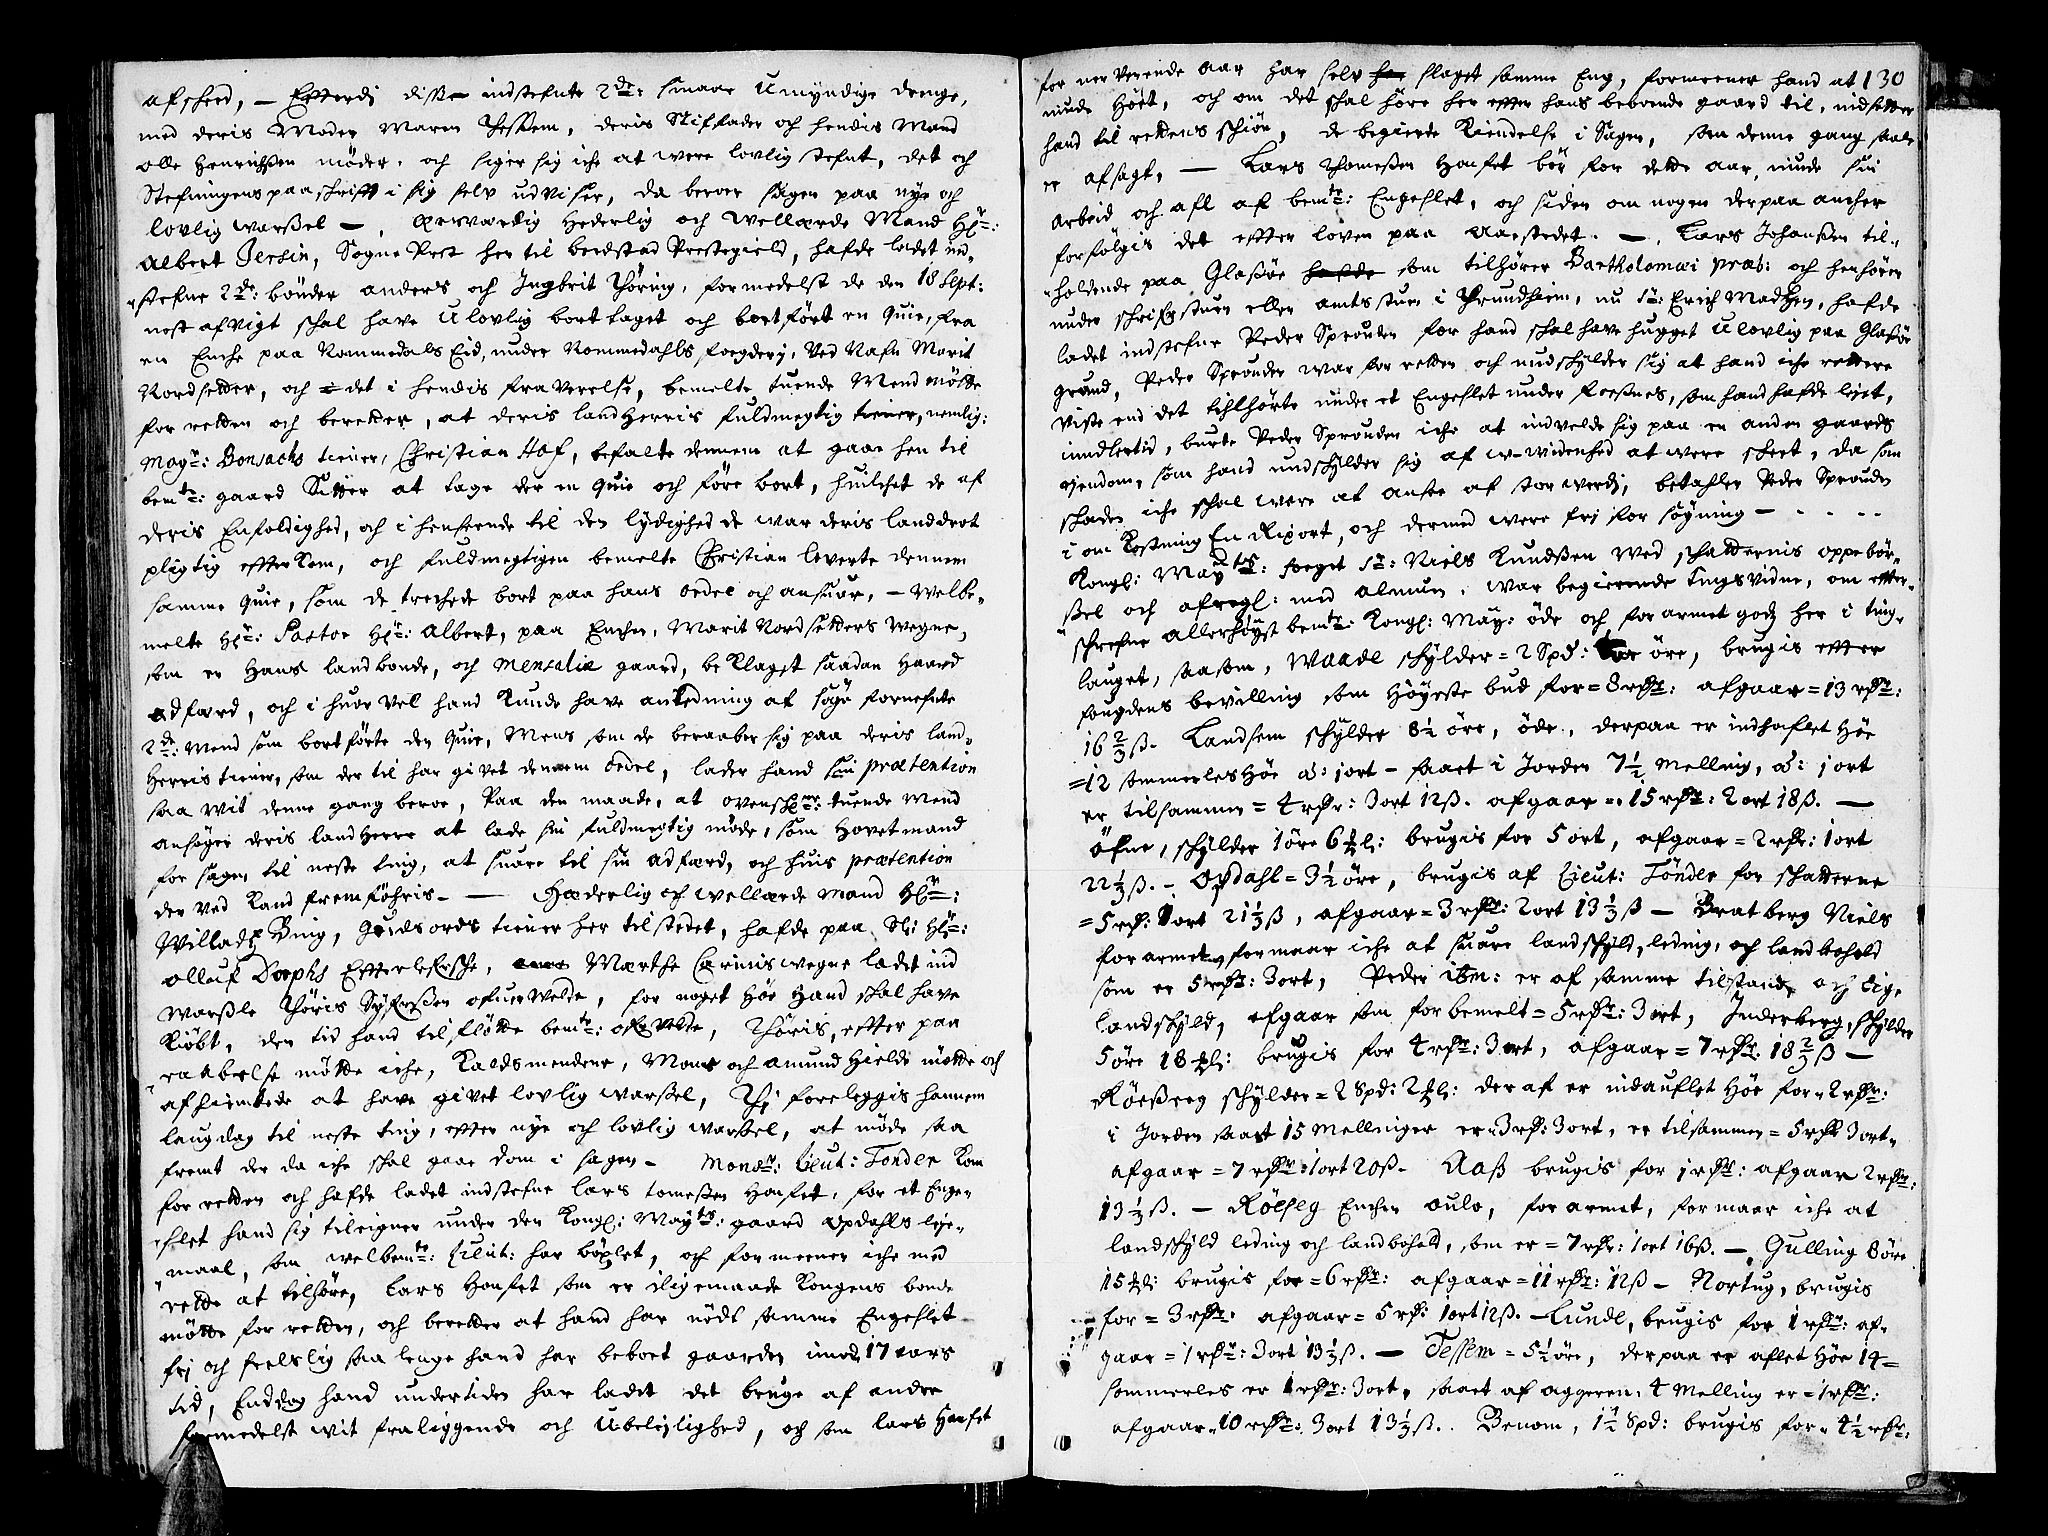 afsced, – Efterdj disse indstefnte 2de: smaae Umyndige drenge,
med deris Moder Maren Thessem, deris Stiffader och hendis Mand
Olle Henrichsen møder, och siger sig iche at were lovlig stefnt, det och
Stefningens paaschrifft i sig selv udviser, da beroer sagen paa nye och
lovlig warßel –, Ærværdig Hederlig och Wellærde Mand Hr:
Albert Jersin, Sogne Prest her til beidstad Prestegield, hafde ladet ind-
stefne 2de: bønder Anders och Ingbrit Thøring, formedelst de den 18 Sept:
nest afvigt schal have Ulovlig bort taget och bortført en Quie, fra
en Enche paa Nammedals Eid, under Nommedahls foegderj, Ved Nafn Marit
Nordsetter, och det i hendis fraværelse, bemelte tuende Mend møtte
for retten och beretter, at deris landHerris fuldmegtig, nemlig:
Mayr: Bonsachs tiener, Christian Hof, befalte dennem at gaae hen til
bemte: gaard Setter at tage der en Quie och føre bort, huilchet de af
deris Enfoldighed, och i henseende til den lydighed de war deris landdrot
pligtig efterkom, och fuldmegtigen bemelte Christian leverte dennem
samme Quie, som de trechede bort paa hans ordel och ansuar, – Welbe-
melte Hr: Pastor Hr: Albert, paa Enchen, Marit Nordsetters wegne,
som er Hans landbonde, och Mensalie gaard, beklaget saadan Haard
adfærd, och i huor vel hand kunde have anledning at søge fornefnte
2de: Mend som bortførte den Quie, Mens som de beraaber sig paa deris land-
Herris tiener, som der til har givet dennem ordel, lader hand sin prætention
saa wit denne gang beroe, Paa den maade, at ovenschr: tuende Mend
ansøger deris landHerre at lade sin fuldmegtig møde, som Hovetmand
for sagen til neste ting, at suare til sin adfærd, och huis prætention
der ved kand fremføhris. – Hæderlig och wellærde Mand Hr:
Willadtz Bing, Guds ords tiener her til stedet, hafde paa Sl: Hr:
Olluf Dorphs Efterleversche, Marthe Carinis wegne ladet ind
warßle Thøris Syfersen ofuerwelde, for noget Høe Hand schal have
kiøbt, den tid hand til fløtte bemte: ofuervelde, Thøris, efter paa
raabelse møtte iche, Kaldsmendene, Mons och Amund Hielde møtte och
afhiemlede at have givet lovlig warßel, Thj foreleggis hannem
laugdag til neste ting, efter nye och lovlig warßel, at møde saa
fremt der da iche schal gaae dom i sagen – Monsr: Lieut: Tønder kom
for retten och hafde ladet indstefne Lars tomeßen Honset, for et Enge-
slet hand sig tileigner under den Kongl: Maytts: gaard Opdahls leje-
maal, som welbemte: Lieut: har bøxlet, och formeener iche med
rette at tilhøre, Lars Honset som er iligemaade Kongens bonde
møtte for retten, och beretter at hand har nødt samme Engeslet
frj och frelslig saa lenge hand har beboet gaarden imod 17 aars
tid, Enddog hand undertiden har ladet det bruge af andre
formedelst wit fraliggende och Ubelejlighed, och som Lars Honset
for nerverende aar har selv slaget samme Eng, formeener hand at 130
niude Høet, och om det schal høre her efter hans beboende gaard til, indsetter
hand til rettens schiøn, de begierte Kiendelse i Sagen, som denne gang saale
er afsagt, – Lars Thomeßen Honset bør for dette aar, niude sin
Arbeid och afl af bemte: Engeslet, och siden om nogen derpaa ancher
forfølgis det efter loven paa Aaestedet. –, Lars Johanßen til-
holdende paa Glasøe som tilhører Bartholomæi præb: och henhører
under schrifstuen eller amtstuen i Trundhiem, nu Sr: Erich Madtzen, hafde
ladet indstefne Peder Sprouden for hand schal have hugget Ulovlig paa Glasøe
grund, Peder Sprouden war for retten och undschylder sig at hand iche rettere
viste end det tihlhørte under et Engeslet under Fosßnes, som hand hafde lejet,
imidlertid, burte Peder Sprouden iche at indvelde sig paa en anden gaards
ejendom, som hand undschylder sig af w-widenhed at were scheet, da som
schaden iche schal were at ansee af stor werdj, betahler Peder Sprouden
i omkostning En Rixort, och dermed were frj for søgning – . . . .
Kongl: Maytts: foeget Sr: Niels Knudßen wed schatternis oppebør-
ßel och afregl: med almuen, war begierende tingsvidne, om efter-
schrefne allerhøyst bemte: Kongl: May: øde och forarmet godz her i ting-
lauget, saasom, Waade schylder = 2 Spd: øre, brugis efter
fougdens bevilling som Høyeste bud for = 8 rdr: afgaar = 13 rdr:
16⅔ ß. Landsem schylder 8½ øre, øde, derpaa er indhaflet Høe
= 12 sommerles Høe á: 1ort – saaet i Jorden 7½ melling, á: 1ort
er tilsammen = 4 rdr: 3ort 12ß. afgaar = 15 rdr: 2ort 18ß. –
Øfne, schylder 1øre 6 l: brugis for 5 ort, afgaar = 2 rdr: 1ort
22⅓ ß. – Opdahl = 3½ øre, brugis af Lieut: Tønder for schatterne
= 5 rdr: 1ort 21⅓ ß, afgaar = 3 rdr: 2ort 13⅓ ß – Bratberg Niels
forarmet, formaar iche at suare landschyld, leding, och landbohold
som er 5 rdr: 3ort, Peder ibm: er af samme tilstand och lige
landschyld, afgaar som forbemelt = 5 rdr: 3ort, Inderberg, schylder
5øre 18 l: brugis for 4 rdr: 3ort, afgaar = 7 rdr. 18⅔ ß –
Røeßeeg schylder = 2 Spd: 2 l: der af er indauflet Høe for = 2 rdr:
i Jorden saaet 15 Mellinger er = 3 rdr: 3ort, er tilsammen = 5 rdr 3ort,
afgaar = 7 rdr: 1ort 20ß. Aaß brugis for 1 rdr: afgaar 2 rdr:
13⅓ ß. – Røeseg Enchen oulo, forarmet, formaar iche at
landschyld leding och landbohold, som er = 7 rdr: 1ort 16ß. –, Gulling 8øre
15 l: brugis for = 6 rdr: afgaar = 11 rdr: 12ß – Nortug, brugis
for = 3 rdr: afgaar = 5 rdr: 1ort 12ß. – Lunde, brugis for 1 rdr: af-
gaar = 1 rdr: 3ort 13⅓ ß. – Tessem = 5½ øre, derpaa er aflet Høe 14 =
sommerles er 1 rdr: 3ort, saaet af aggeren 4 Melling er = 1 rdr:
afgaar = 10 rdr: 3ort 13⅓ ß.. Benom, 1½ Spd: brugis for = 4½ rdr: